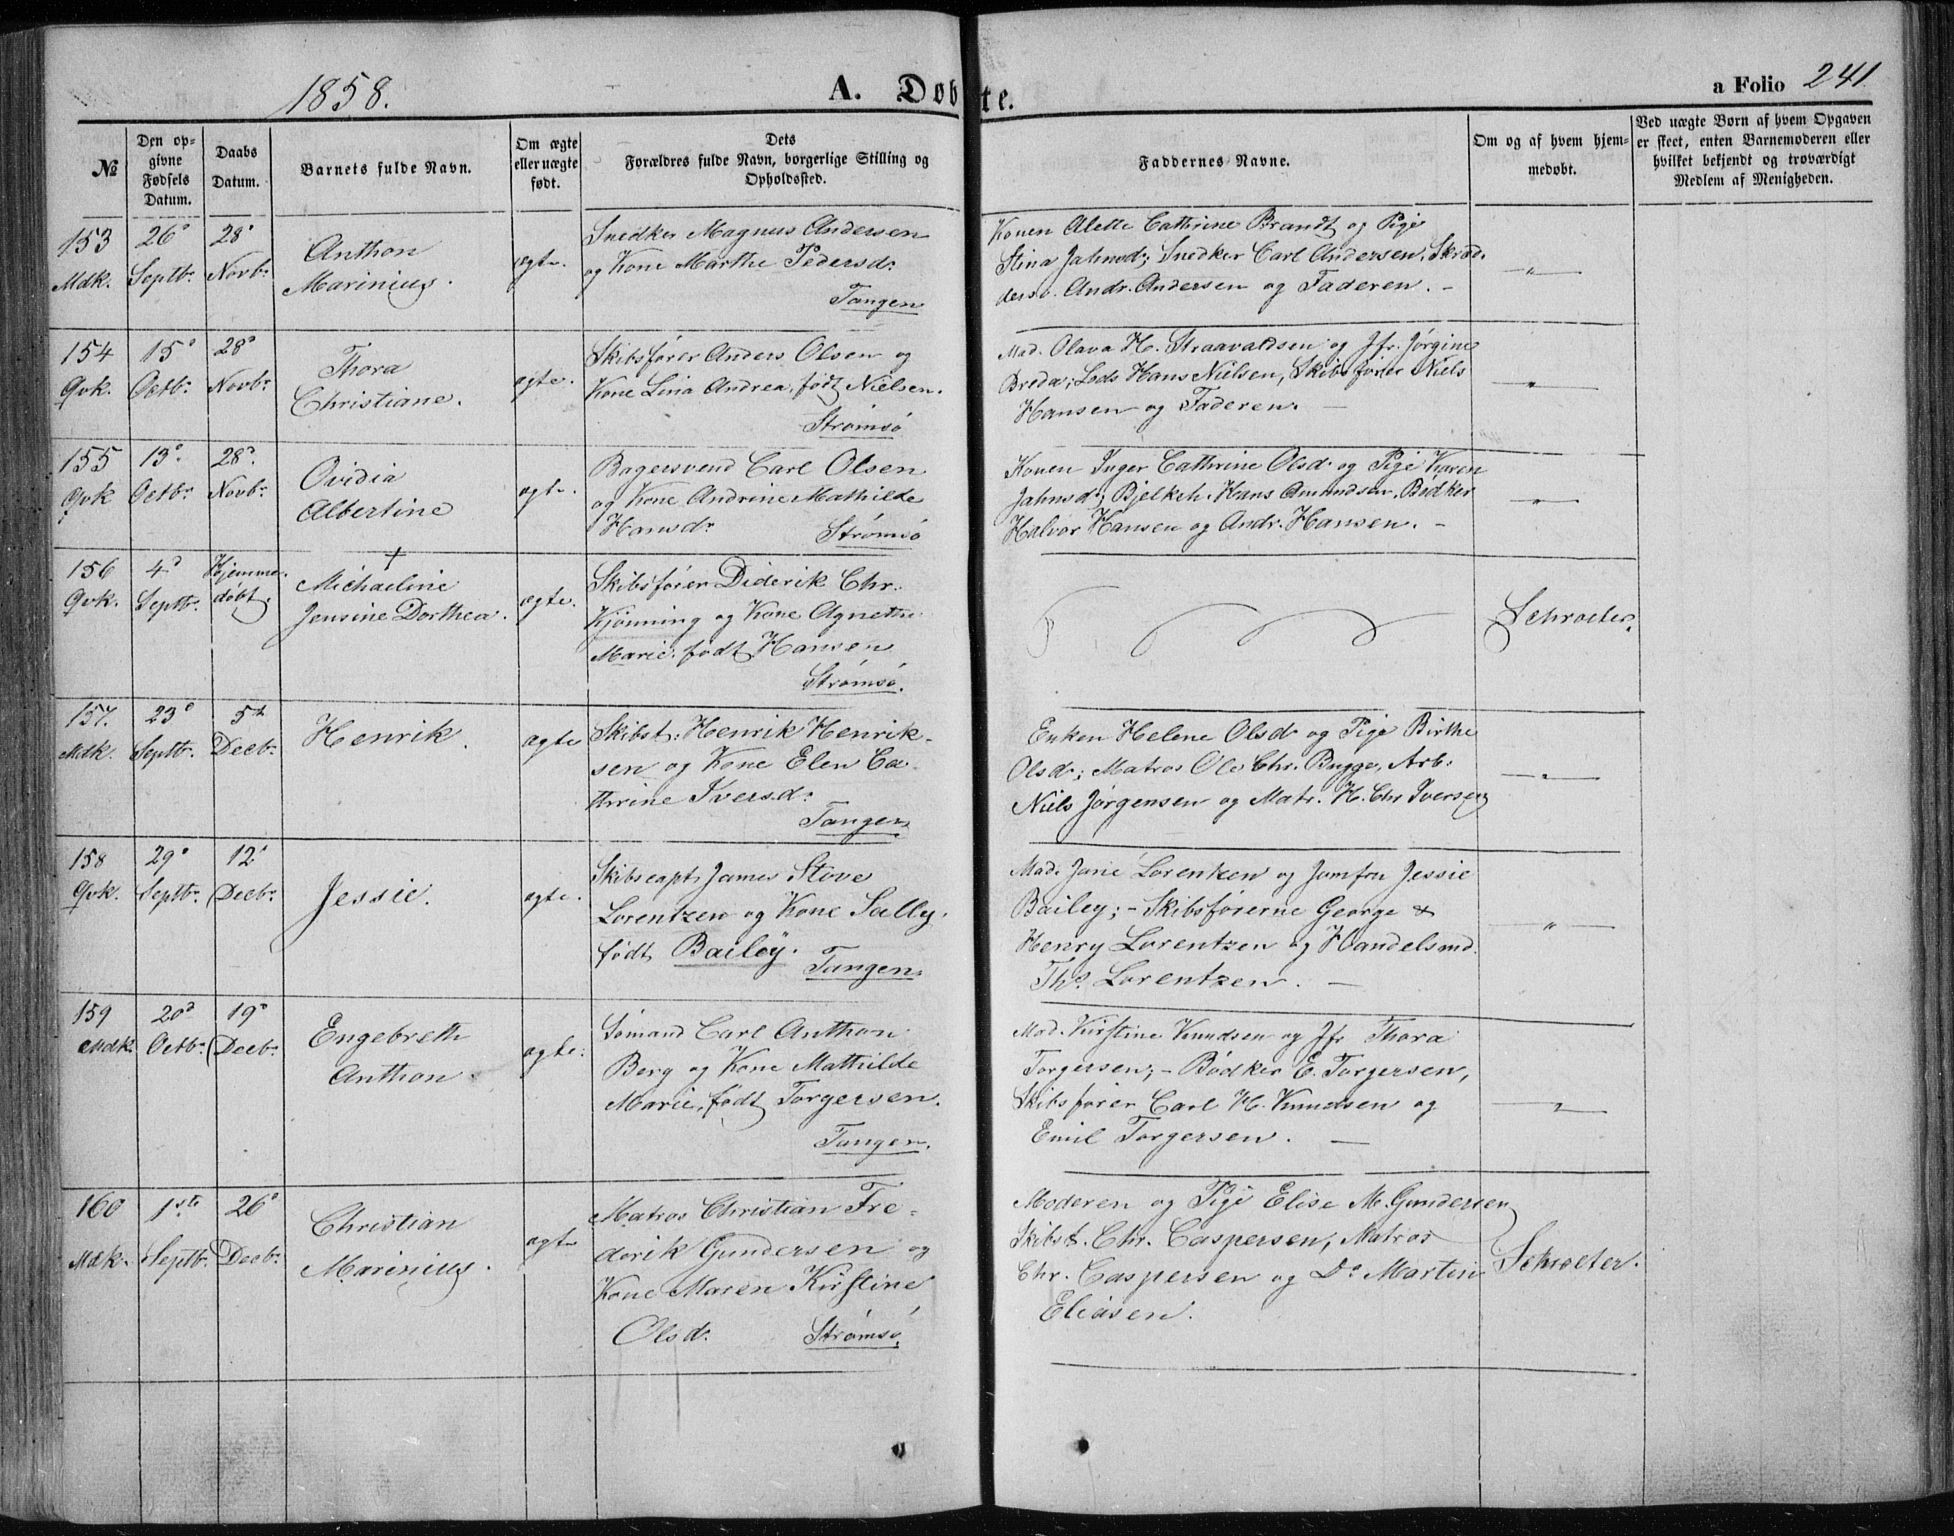 1858.
A. Døbte.
a Folio 241
№
Den op-
givne
Fødsels
Datum.
Daabs
Datum.
Barnets fulde Navn.
Om ægte
eller uægte
født.
Dets
Forældres fulde Navn, borgerlige Stilling og
Opholdssted.
Faddernes Navne.
Om og af hvem hjem-
medøbt.
Ved uægte Børn af hvem Opgaven
er skeet, enten Barnemoderen eller
hvilket bekjendt og troværdigt
Medlem af Menigheden.
153
Mdk.
26de
Septbr.
28de
Novbr.
Anthon
Marinius.
ægte.
Snedker Magnus Andersen
og Kone Marthe Pedersd.
Tangen
Konen Alette Cathrine Brandt og Pige
Stina Jahnsd; Snedker Carl Andersen, Skræd-
ders. Andr. Andersen og Faderen. -
"
154
Qvk.
15de
Octbr.
28de
Novbr.
Thora
Christiane.
ægte.
Skibsfører Anders Olsen og
Kone Lina Andrea, født Nielsen.
Strømsø
Mad. Olava H. Straavaldsen og Jfr. Jørgine
Breda; Lods Hans Nielsen, Skibsfører Niels
Hansen og Faderen. -
"
155
Qvk
13de
Octbr.
28de
Novbr.
Ovidia
Albertine
ægte.
Bagersvend Carl Olsen
og Kone Andrine Mathilde
Hansdr.
Strømsø
Konen Inger Cathrine Olsd. og Pige Karen
Jahnsd; Bjelkeh. Hans Amundsen, Bødker
Halvor Hansen og Andr. Hansen. -
"
156
Qvk.
4de
Septbr.
Hjemme-
døbt.
†
Michaeline
Jensine Dorthea.
ægte.
Skibsfører Diderik Chr.
Kjønning og Kone Agnethe
Marie, født Hansen
Strømsø.
Schroeter.
157.
Mdk.
23de
Septbr.
5te
Decbr.
Henrik.
ægte
Skibst: Henrik Henrik-
sen og Kone Elen Ca-
thrine Iversd.
Tangen
Enken Helene Olsd. og Pige Birthe
Olsd; Matros Ole Chr. Bugge, Arb:
Niels Jørgensen og Matr. H. Chr Iversen
"
158
Qvk.
29de
Septbr.
12te
Decbr.
Jessie.
ægte.
Skibscapt. James Stove
Lorentzen og Kone Sally,
født Bailey.
Tangen.
Mad. Jane Lorentzen og Jomfru Jessie
Bailey; - Skibsførerne George &
Henry Lorentzen og Handelsmd.
Ths. Lorentzen. -
"
159
Mdk.
20de
Octbr.
19de
Decbr.
Engebreth
Anthon
ægte.
Sømand Carl Anthon
Berg og Kone Mathilde
Marie, født Torgersen.
Tangen.
Mad. Kirstine Knudsen og Jfr Thora
Torgersen; - Bødker E. Torgersen,
Skibsfører Carl H. Knudsen og
Emil Torgersen. -
"
160
Mdk.
1ste
Septbr.
26de
Decbr.
Christian
Marinius.
ægte
Matros Christian Fre-
derik Gundersen og
Kone Maren Kirstine
Olsd.
Strømsø.
Moderen og Pige Elise M. Gundersen
Skibst. Chr. Caspersen, Matros
Chr. Caspersen og Do Martin
Eliasen.
Schroeter.